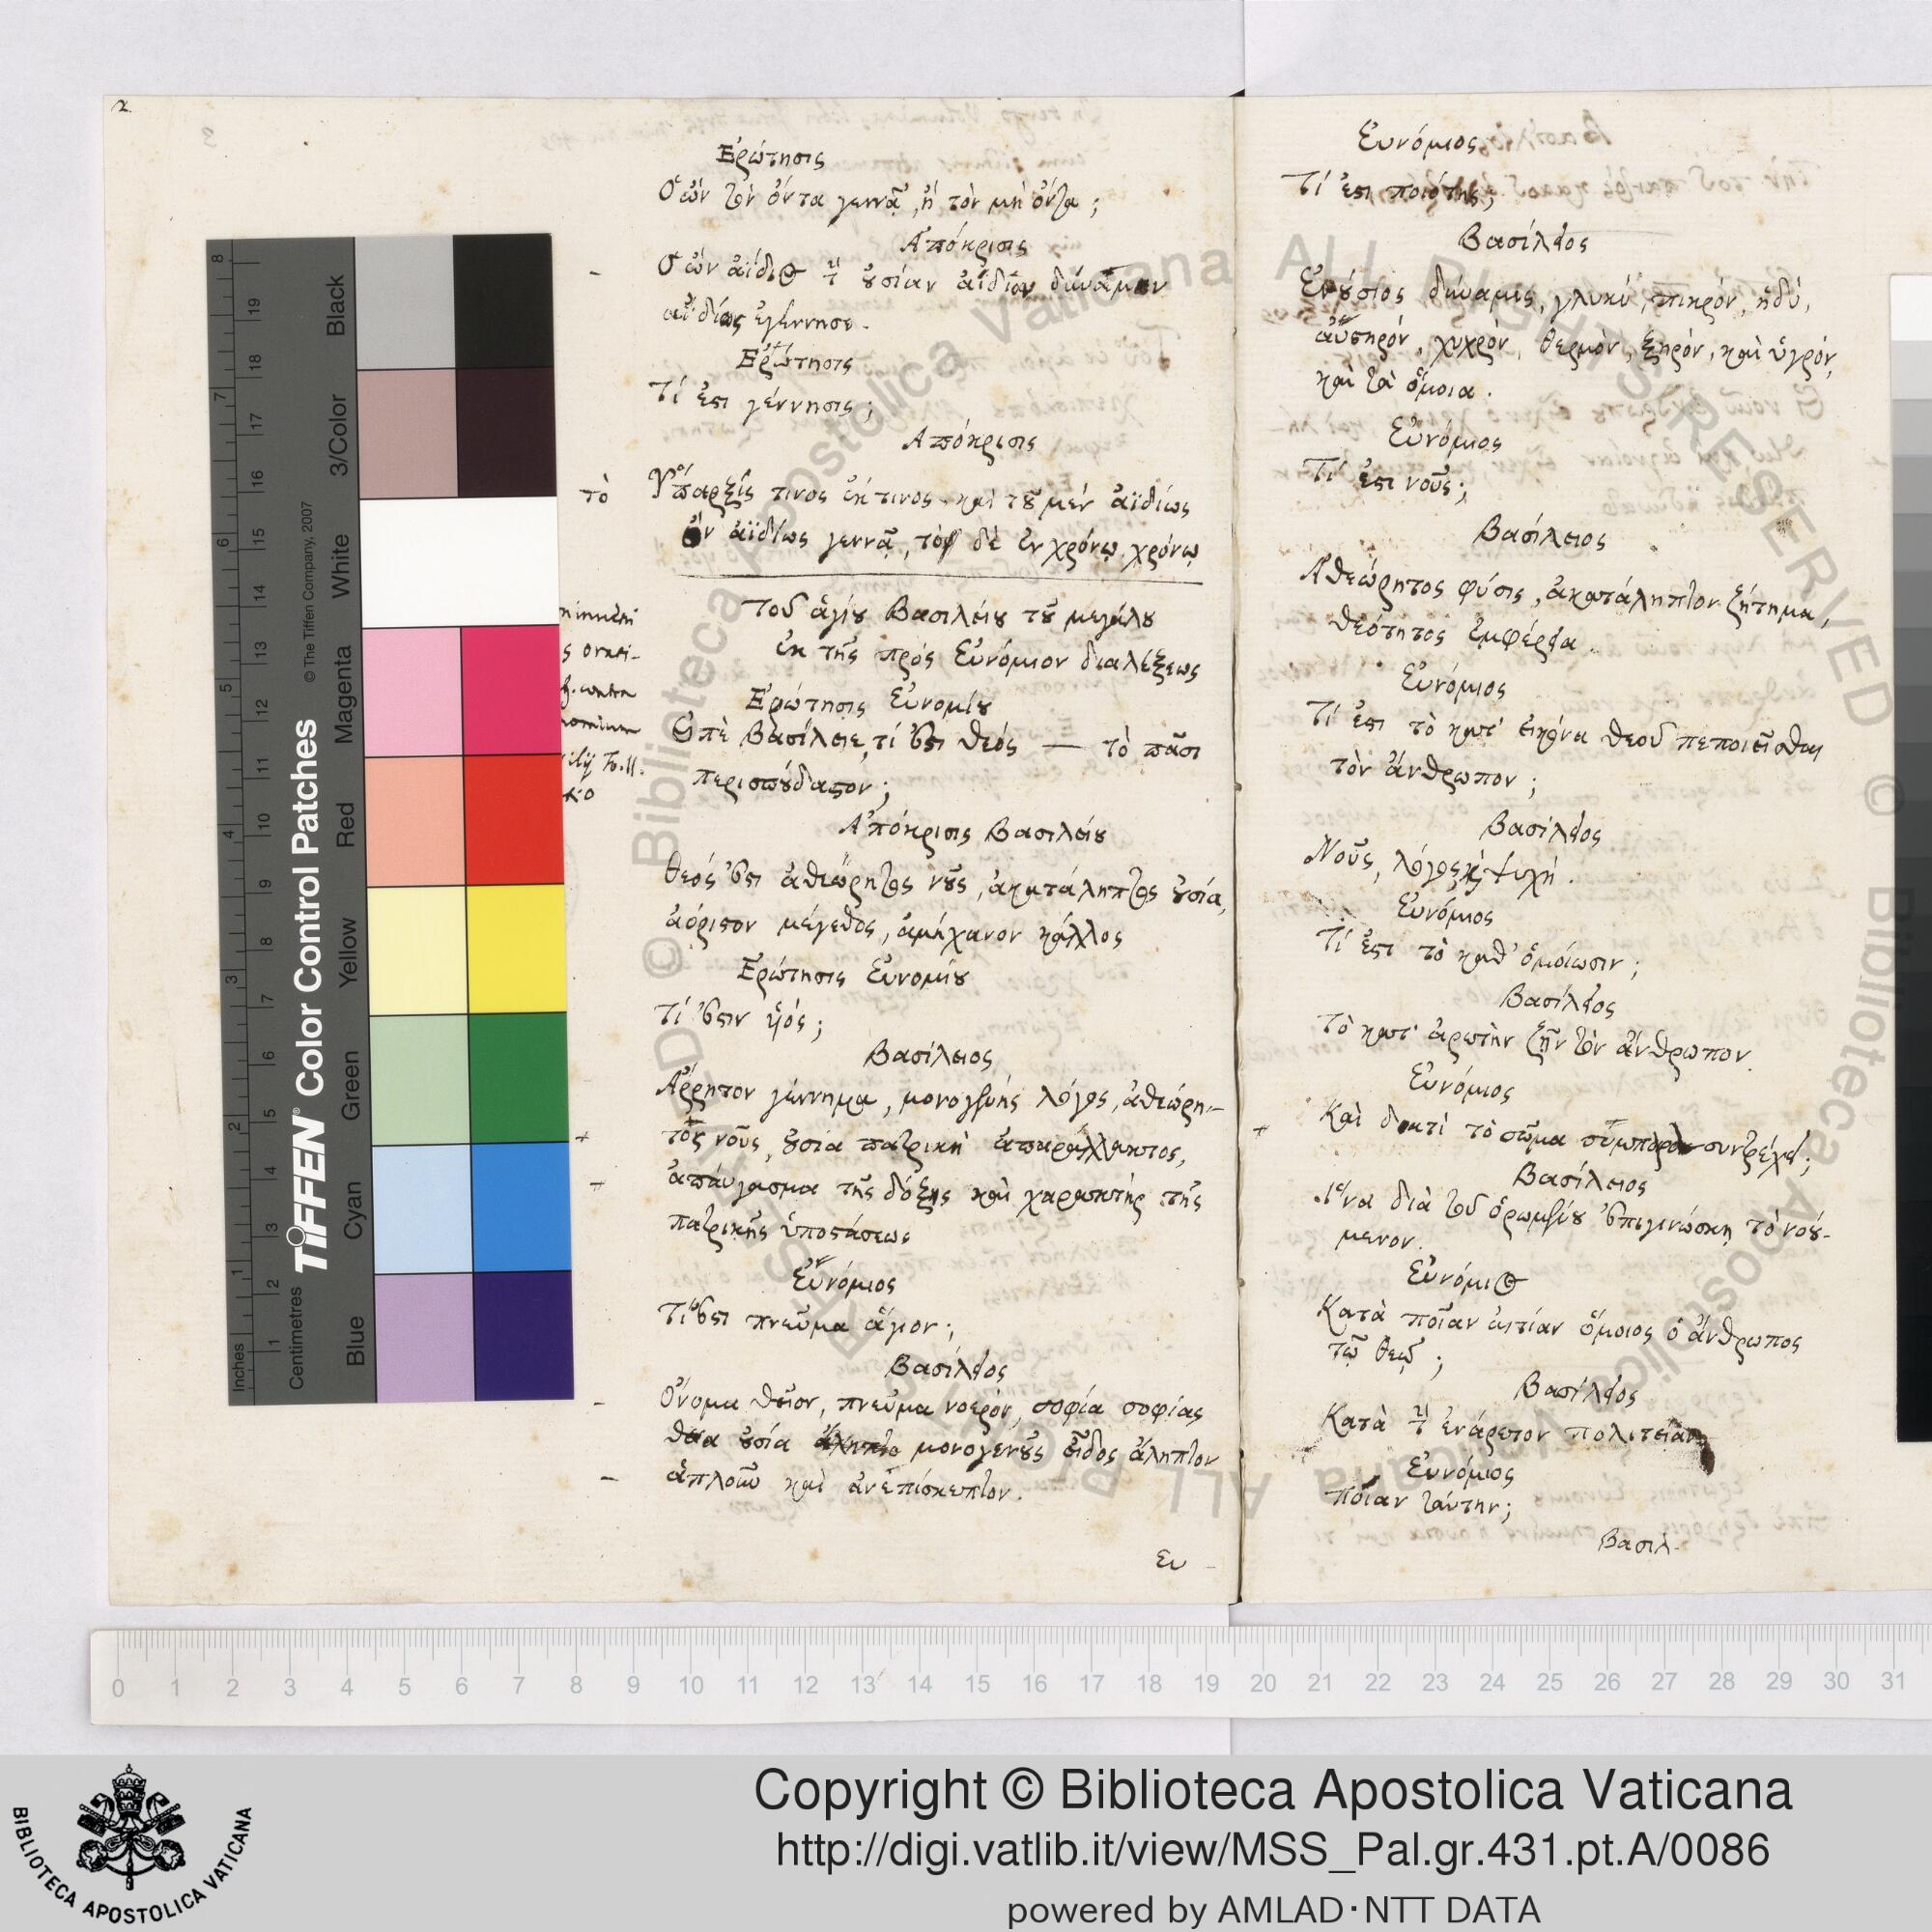 2
Ἐρώτησις
Ὁ ὢν τὸν ὄντα γεννᾷ, ἢ τὸν μὴ ὄντα;
Ἀπόκρισις
Ὁ ὢν ἀΐδιος τ οὐσίαν ἀΐδιον δύναμιν
ἀϊδίως ἐγέννησε.
Ἐρώτησις
Τί ἐστι γέννησις;
Ἀπόκρισις
τὸ Ὕπαρξίς τινος ἔκ τινος. καὶ τοῦ μὲν ἀϊδίως
ὂν ἀϊδίως γεννᾷ, τὸ δὲ ἐν χρόνῳ χρόνῳ
Τοῦ ἁγίου Βασιλείου τοῦ μεγάλου
ἐκ τῆς πρὸς Εὐνόμιον διαλέξεως
Ἐρώτησις Εὐνομίου
Εἰπὲ Βασίλειε, τί ἐστι θεός — τὸ πᾶσι
περισπούδαστον;
Ἀπόκρισις Βασιλείου
Θεός ἐστι ἀθεώρητος νοῦς, ἀκατάληπτος οὐσία,
ἀόριστον μέγεθος, ἀμήχανον κάλλος
Ἐρώτησις Εὐνομίου
Τί ἐστιν υἱός;
Βασίλειος
Ἄῤῥητον γέννημα, μονογενὴς λόγος, ἀθεώρη-
τος νοῦς, οὐσία πατρικὴ ἀπαράλλακτος,
ἀπαύγασμα τῆς δόξης καὶ χαρακτὴρ τῆς
πατρικῆς ὑποστάσεως
Εὐνόμιος
Τί ἐστι πνεῦμα ἅγιον;
Βασίλειος
Ὄνομα θεῖον, πνεῦμα νοερὸν, σοφία σοφίας
θεία οὐσία μονογενοῦς εἶδος ἄληπτον
ἁπλοῦν καὶ ἀνεπίσκεπτον.
ευ
Εὐνόμιος
Τί ἐστι ποιότης;
Βασίλειος
Ἐνούσιος δύναμις, γλυκὺ, πικρὸν, ἡδὺ,
αὐστηρόν, ψυχρὸν, θερμὸν, ξηρόν, καὶ ὑγρόν,
καὶ τὰ ὅμοια.
Εὐνόμιος
Τί ἐστι νοῦς;
Βασίλειος
Ἀθεώρητος φύσις, ἀκατάληπτον ζήτημα,
θεότητος ἐμφέρεια.
Εὐνόμιος
Τί ἐστι τὸ κατ' εἰκόνα θεοῦ πεποιεῖσθαι
τὸν ἄνθρωπον;
Βασίλειος
Νοῦς, λόγος, καὶ ψυχή.
Εὐνόμιος
Τί ἐστι τὸ καθ' ὁμοίωσιν;
Βασίλειος
Τὸ κατ' ἀρετὴν ζῆν τὸν ἄνθρωπον.
Εὐνόμιος
Καὶ διατί τὸ σῶμα συντρέχει;
Βασίλειος
Ἵνα διὰ τοῦ ὁρωμένου ἐπιγινώσκῃ τὸ νοού-
μενον.
Εὐνόμιος
Κατὰ ποῖαν αἰτίαν ὅμοιος ὁ ἄνθρωπος
τῷ θεῷ;
Βασίλειος
Κατὰ τ ἐνάρετον πολιτείαν
Εὐνόμιος
ποίαν ταύτην;
Βασιλ
TIFFEN® Color Control Patches
© The Tiffen Company, 2007
Inches 1 2 3 4 5 6 7 8
Centimetres 1 2 3 4 5 6 7 8 9 10 11 12 13 14 15 16 17 18 19
Blue Cyan Green Yellow Red Magenta White 3/Color Black
0 1 2 3 4 5 6 7 8 9 10 11 12 13 14 15 16 17 18 19 20 21 22 23 24 25 26 27 28 29 30 31
© Biblioteca Apostolica Vaticana ALL RIGHTS RESERVED
BIBLIOTECA APOSTOLICA VATICANA
Copyright © Biblioteca Apostolica Vaticana
http://digi.vatlib.it/view/MSS_Pal.gr.431.pt.A/0086
powered by AMLAD·NTT DATA